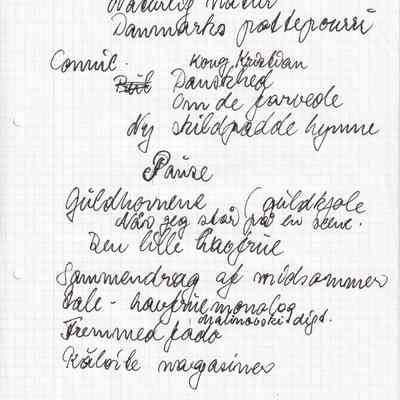 Naturlig natur
Danmarks pottepourri
Conni. Kong Kristian
Danskhed
Om de farvede
Ny skildpadde hymne
Pause
Guldhornene (guldkjole
Når jeg står på en scene.
Den lille havfrue
Sammendrag af midsommer
tale - havfrue monolog
Malinovski digt.
Fremmed fado
Kålorte magasiner